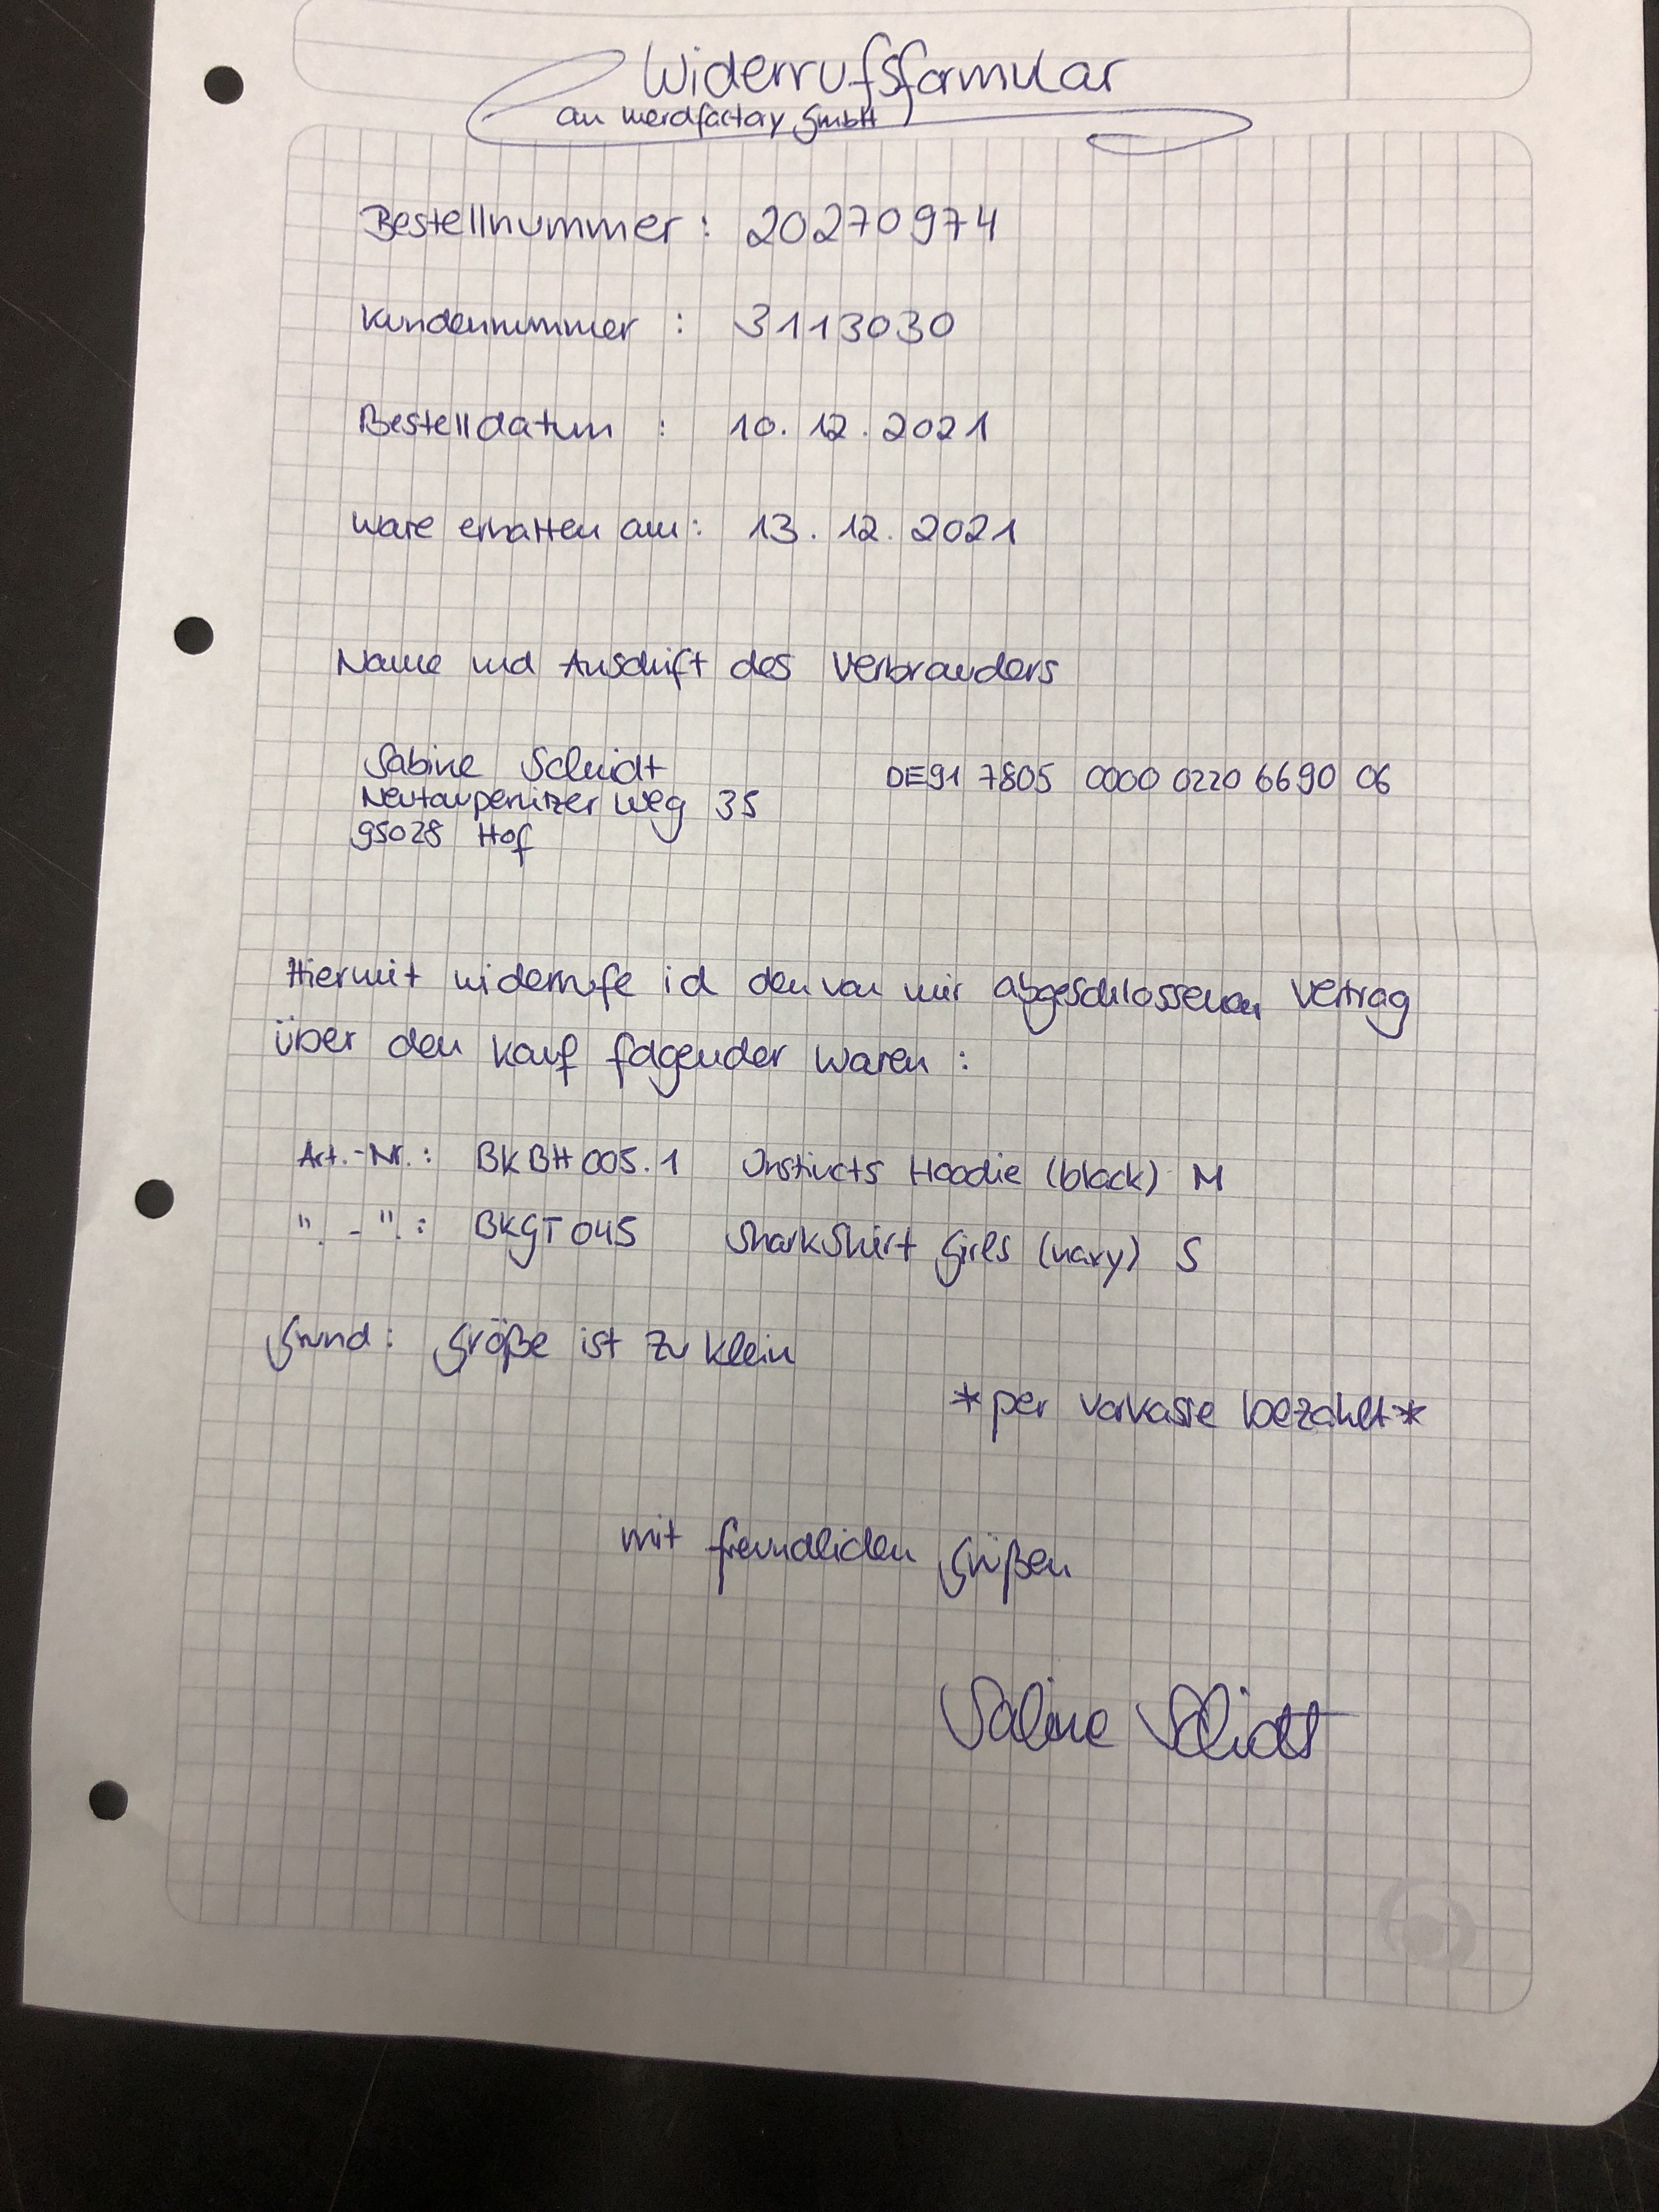 Widerrufsformular
an merdfactory GmbH
Bestellnummer: 20270974
Kundennummer: 3113030
Bestelldatum: 10.12.2021
Ware erhalten am: 13.12.2021
Name und Anschrift des Verbrauchers
Sabine Schidt
DE91 7805 0000 0220 6690 06
Weg 35
95028 Hof
Hiermit widerrufe ich den von mir abgeschlossenen Vertrag
über den Kauf folgender Waren:
Art.-Nr.: BKBH005.1 Instincts Hoodie (black) M
".-".: BKGT045 Sharkshirt Girls (navy) S
Grund: Größe ist zu klein
*per Vorkasse bezahlt*
mit freundlichen Grüßen
Sabine Schidt